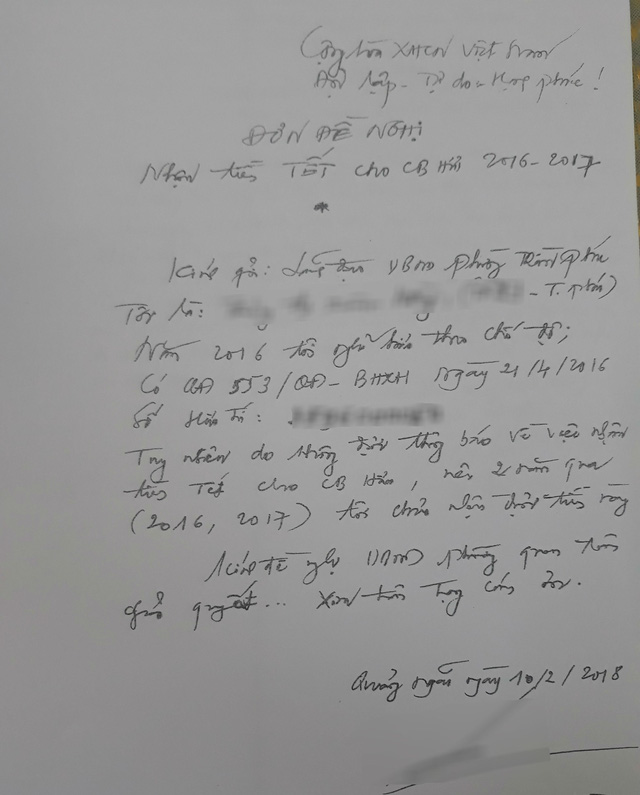 Cộng hòa XHCN Việt Nam
Độc lập - Tự do - Hạnh phúc!
ĐƠN ĐỀ NGHỊ
Nhận tiền TẾT cho CB Hưu 2016-2017
Kính gửi: Lãnh đạo UBND phường Trần Phú
Tôi là: - T. Phú)
Năm 2016 tôi nghỉ hưu theo chế độ;
Có QĐ 553/QĐ-BHXH ngày 21/4/2016
Số Hưu trí:
Tuy nhiên do không được thông báo về việc nhận
tiền Tết cho CB Hưu, nên 2 năm qua
(2016, 2017) tôi chưa nhận được tiền này
Kính đề nghị UBND phường quan tâm
giải quyết... Xin trân trọng cám ơn.
Quảng Ngãi ngày 10/2/2018